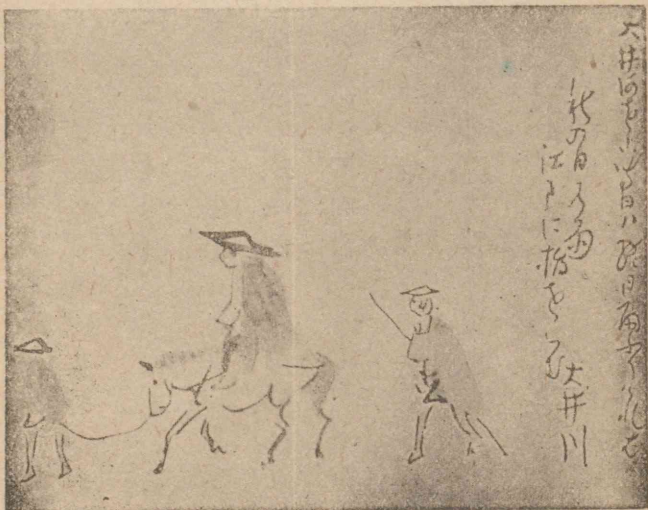 大井河こゆる日ハ終日雨ふりけれは
秋の日の雨
江戸に指をらん
大井川